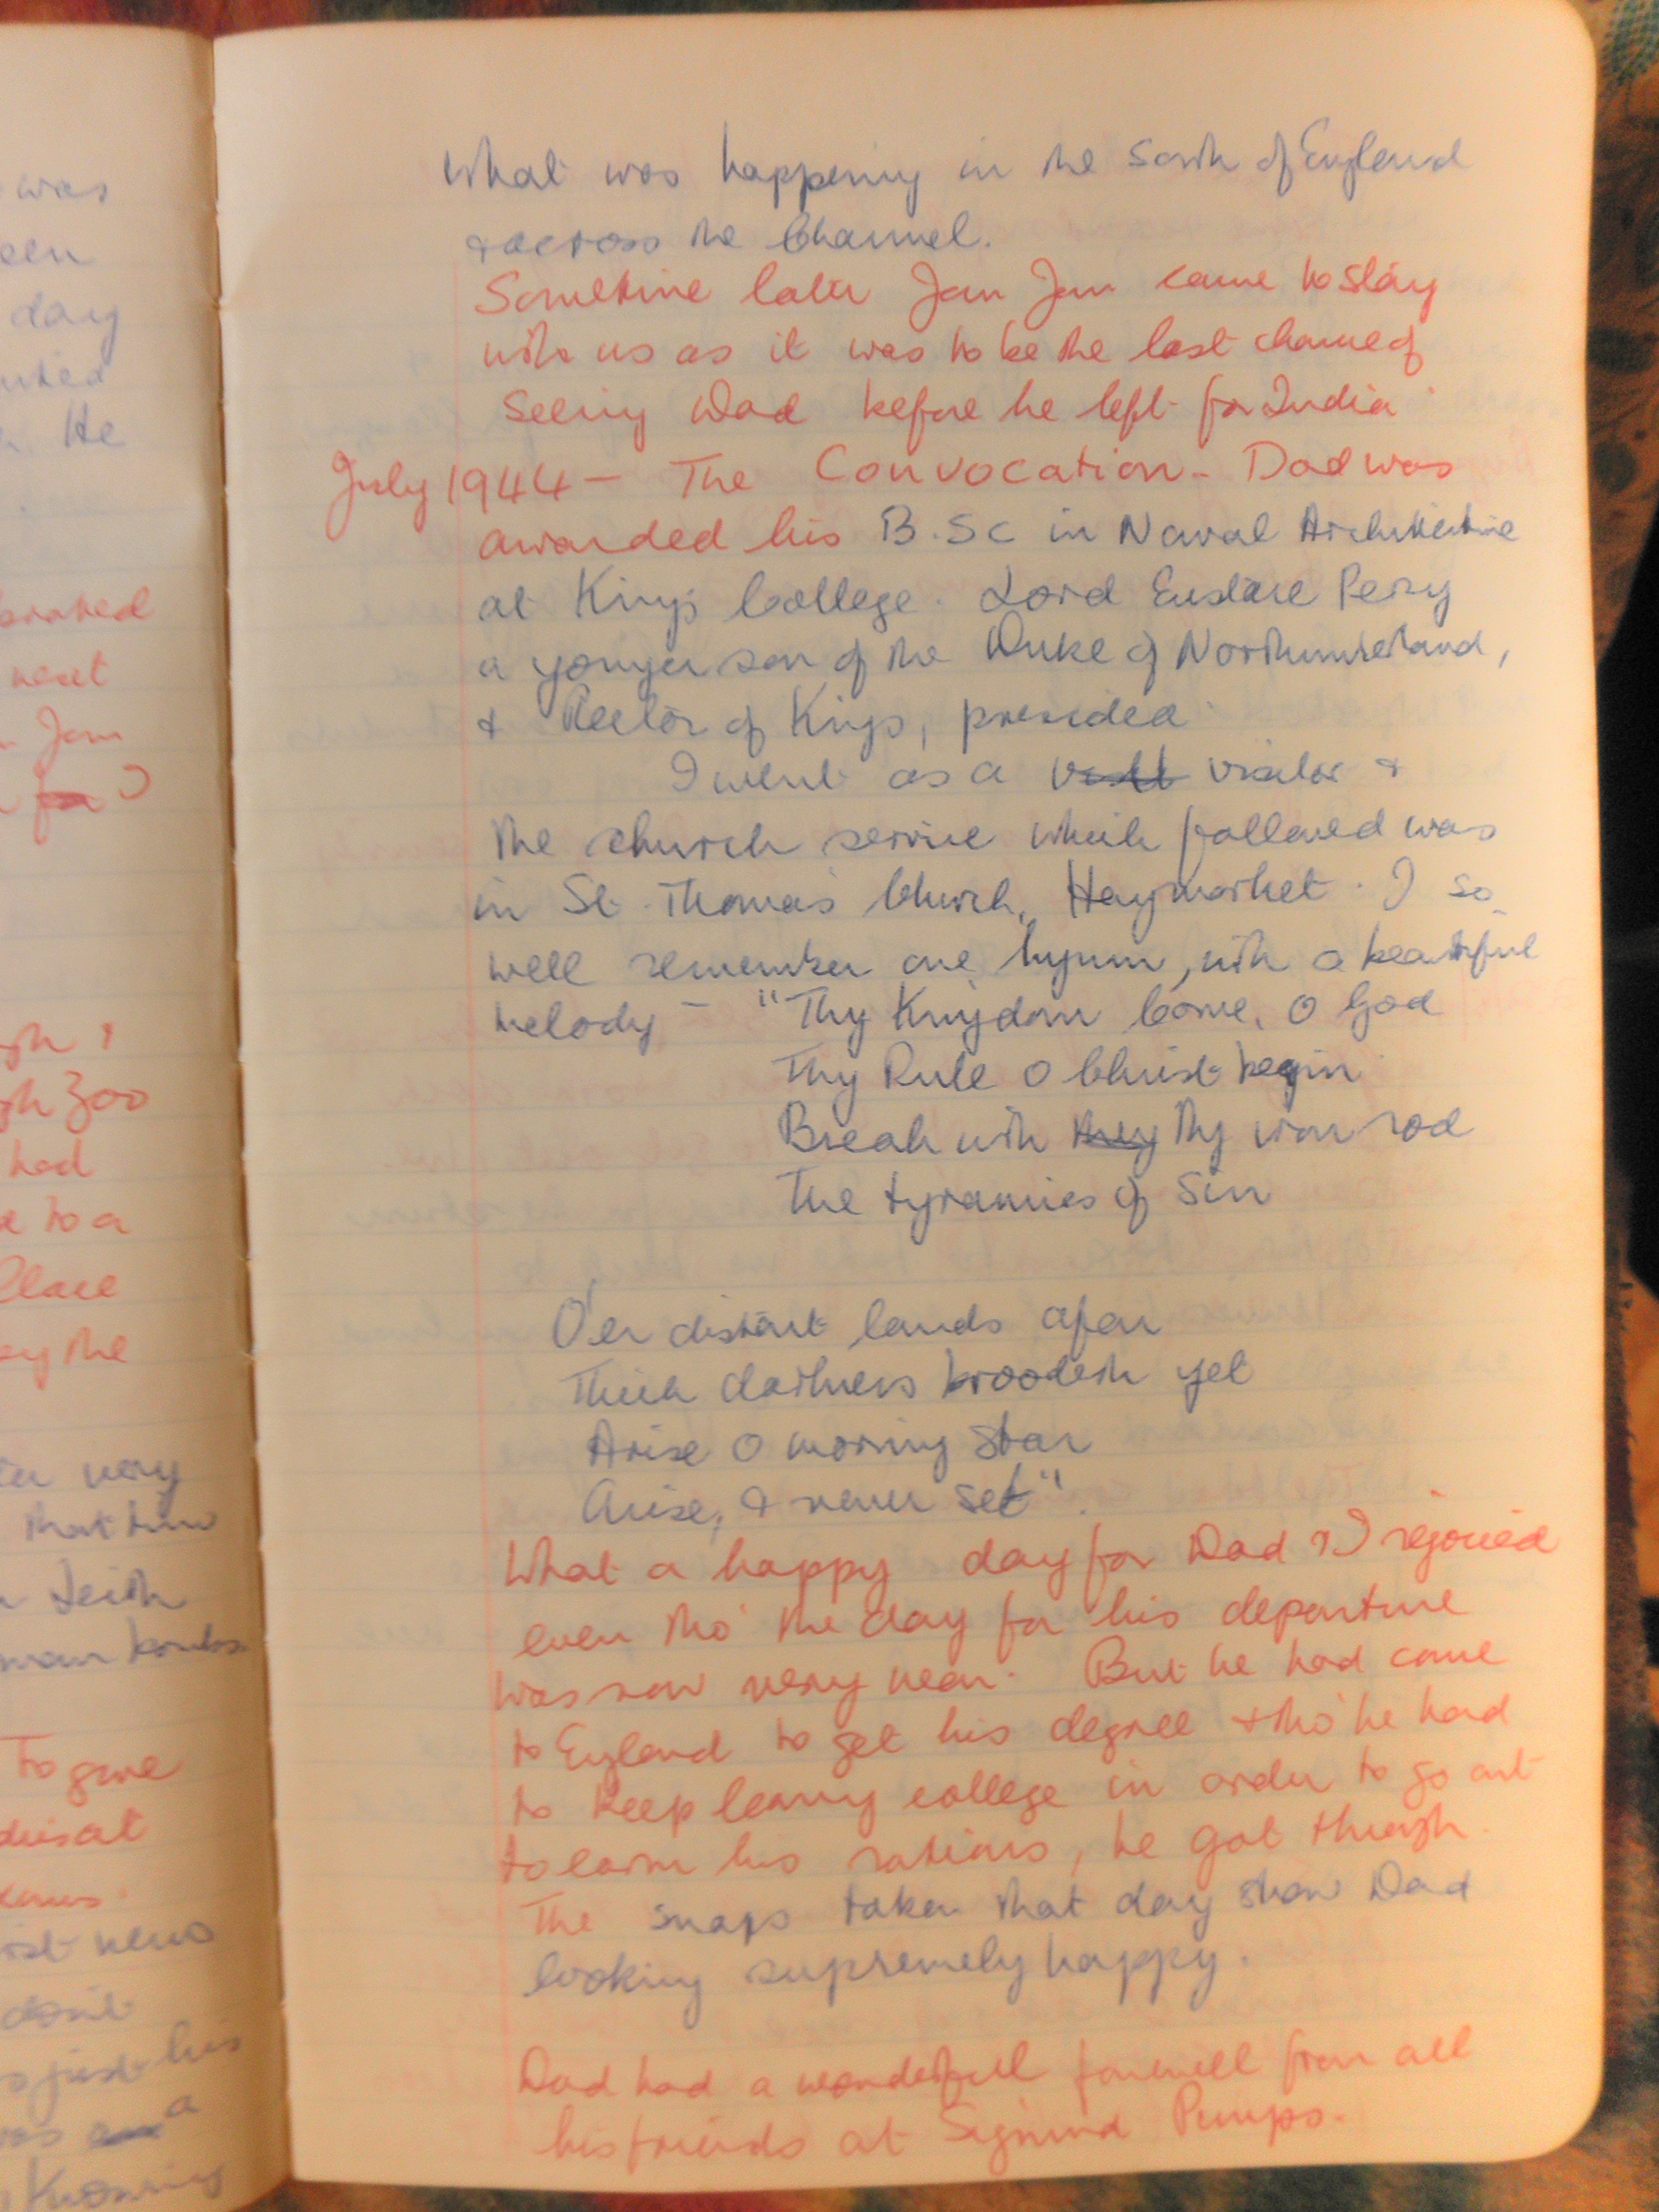 was
een
day
He
brated
next
Jam
gh 1
gh Zoo
had
e to a
Place
ey the
very
that time
Leith
man bombs
To give
first news
don't
just his
was a
Knowing
What was happening in the South of England
& across the Channel.
Sometime later Jam Jam came to stay
with us as it was to be the last chance of
seeing Dad before he left for India
July 1944 — The Convocation - Dad was
awarded his B.Sc in Naval Architecture
at King's College. Lord Eustace Percy
a younger son of the Duke of Northumberland,
& Rector of Kings, presided.
I went as a visitor &
the church service which followed was
in St. Thomas Church, Haymarket. I so
well remember one hymn, with a beautiful
melody — "Thy Kingdom Come, O God
Thy Rule O Christ begin
Break with they Thy iron rod
The tyrannies of Sin
O'er distant lands afar
Thick darkness broodeth yet
Arise O morning Star
Arise, & never set".
What a happy day for Dad & I rejoiced
even tho' the day for his departure
was now very near. But he had come
to England to get his degree & tho' he had
to keep leaving college in order to go out
to earn his rations, he got through.
The snaps taken that day show Dad
looking supremely happy.
Dad had a wonderfull farewell from all
his friends at Sigmund Pumps.